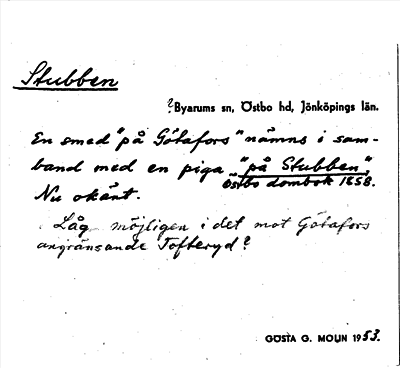 Stubben
?Byarums sn, Östbo hd, Jönköpings län.
En smed "på Götafors" nämns i sam-
band med en piga "på Stubben",
Östbo dombok 1658.
Nu okänt.
Låg möjligen i det mot Götafors
angränsande Tofteryd?
GÖSTA G. MOLIN 1953.